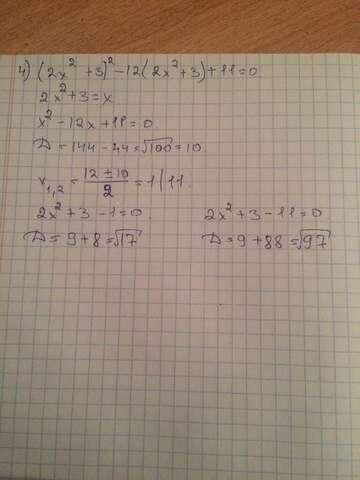 4) (2x² + 3)² - 12(2x² + 3) + 11 = 0
2x² + 3 = x
x² - 12x + 11 = 0
D = 144 - 44 = √100 = 10
x₁,₂ = (12 ± 10)/2 = 1 | 11
2x² + 3 - 1 = 0. 2x² + 3 - 11 = 0
D = 9 + 8 = √17 D = 9 + 88 = √97